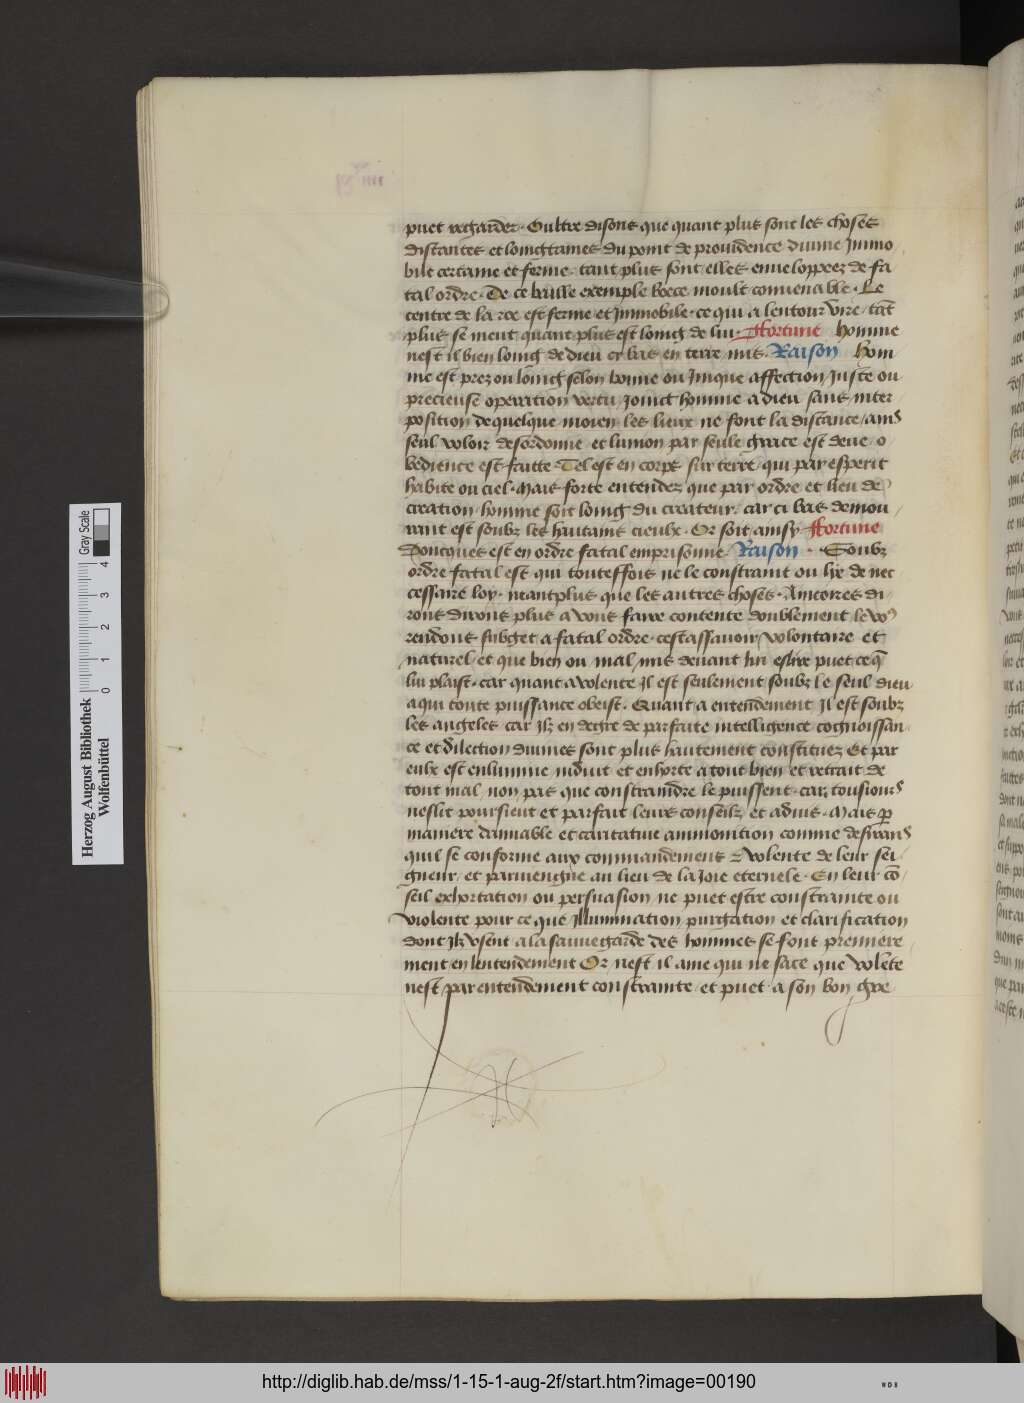 puet regarder. Oultre disons que quant plus sont les choses
distantes et loingtaines du point de prouidence diuine Immo
bile certaine et ferme tant plus sont elles enueloppeez de fa
tal ordre. De ce baille exemple boece moult conuenable. Le
centre de la roe est ferme et Immobile. ce qui a lentour vire tāt
plus se meut quant plus est loing de lui. Ffortune homme
nest il bien loing de dieu cy bas en terre mis. Raison hom
me est prez ou loing selon bonne ou Inique affection Juste ou
precieuse operation vertu Joinct homme a dieu sans inter
position de quelque moien les lieux ne font la distance ains
seul voloir desordonne et lunion par seule grace est deue o
bedience est faitte Tel est en corps sur terre qui par esperit
habite ou ciel. Mais forte entendez que par ordre et lieu de
creation homme soit loing du createur. car ci bas demou
rant est soubz les haultains cieulx. Or soit ainsy Ffortune
Doncques est en ordre fatal emprisonne Raison. Soubz
ordre fatal est qui touteffois ne le constraint ou lye de nec
cessaire loy. neantplus que les autres choses. Ancoires di
rons dirons plus a vous faire contente doublement le vo9
rendons subget a fatal ordre. cest assauoir volontaire et
naturel et que bien ou mal mis deuant lui eslire puet ce q̄
lui plaist. car quant a volente Il est seulement soubz le seul dieu
a qui toute puissance obeist. Quant a entendement Il est soubz
les angeles car Ilz en degre de parfaite intelligence cognoissan
ce et dilection diuines sont plus haultement constituez Et par
eulx est enlumine induit et enhorte a tout bien et retrait de
tout mal non pas que constraindre le puissent. car tousiours
neslit poursieut et parfait leurs conseilz et aduis. Mais p̄
maniere damiable et caritatiue ammonition comme desirans
quil se conforme aux commandemens & volente de leur sei
gneur et paruiengne au lieu de la Joie eternele. En leur cō
seil exhortation ou persuasion ne puet estre constrainte ou
violente pour ce que Illumination purgation et clarification
dont Ilz vsent a la sauuegarde des hommes se font premiere
ment en lentendement Or nest il ame qui ne sace que volēte
nest par entendement constrainte et puet a son bon gre
Herzog August Bibliothek
Wolfenbüttel
0 1 2 3 4
Gray Scale
http://diglib.hab.de/mss/1-15-1-aug-2f/start.htm?image=00190